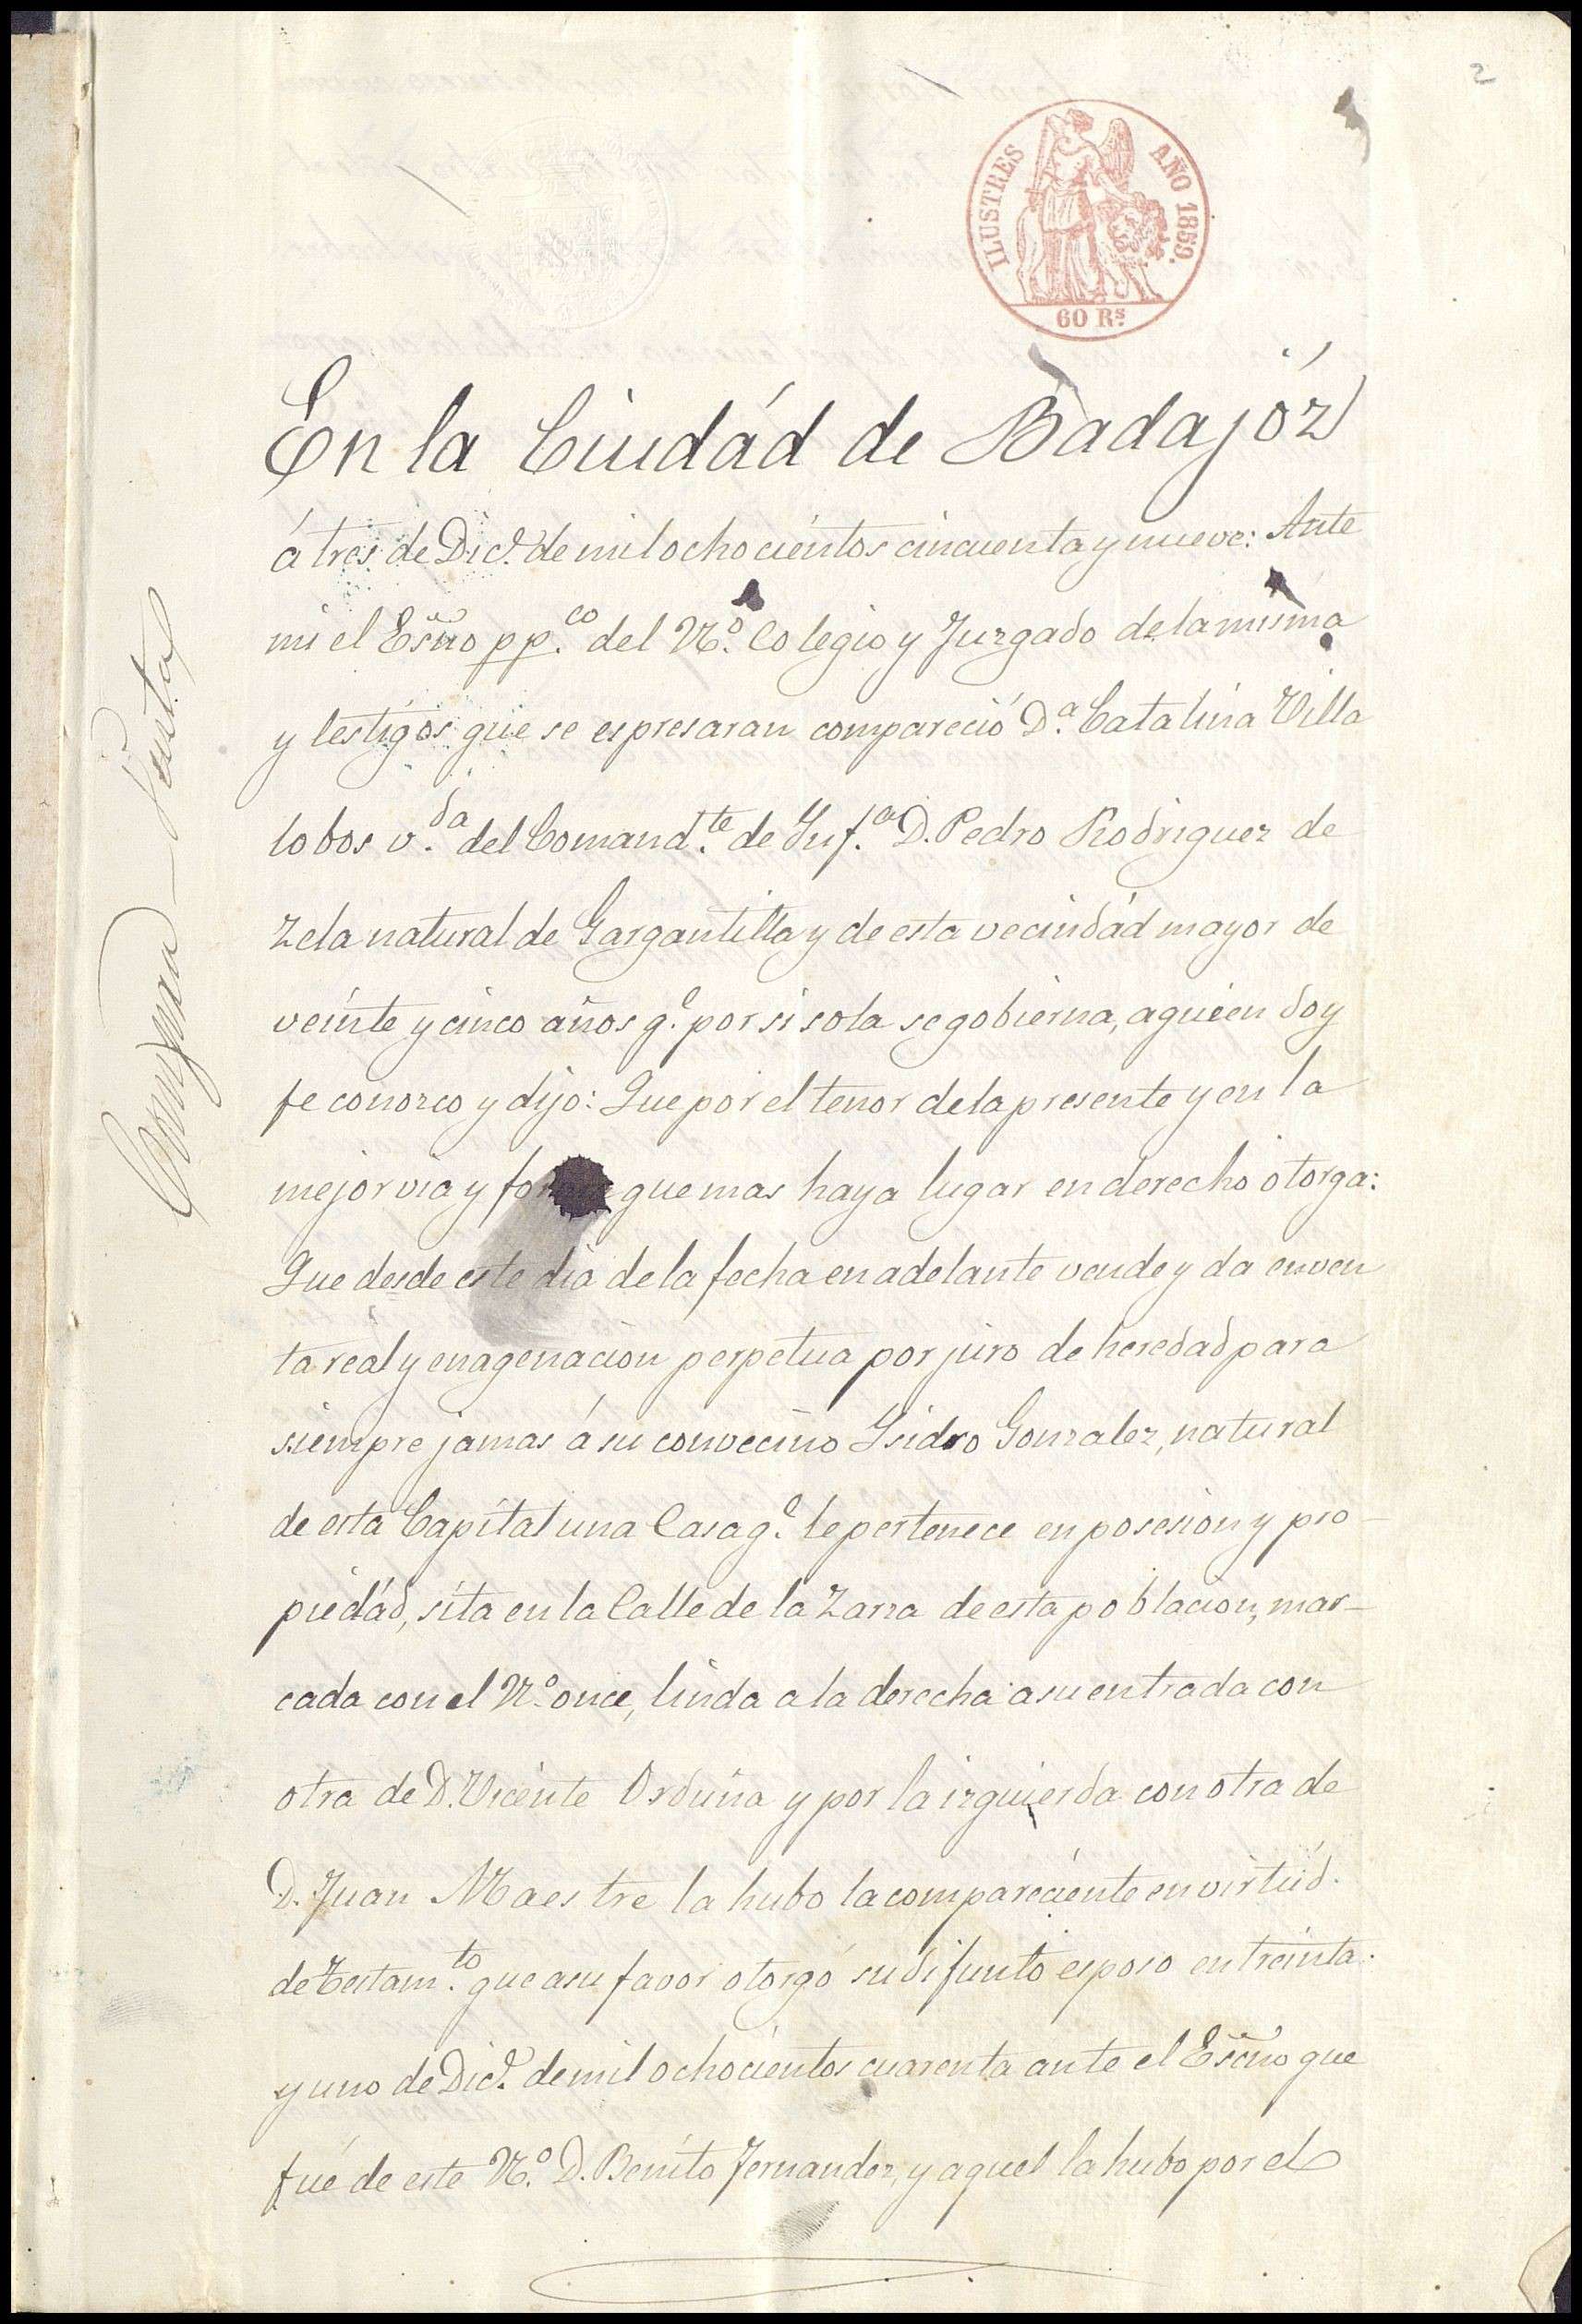 2
ILUSTRES AÑO 1859.
60 Rs.
En la Ciudád de Badajóz
á tres de Dice. de mil ochocientos cincuenta y nueve: Ante
mi el Esc̃no pp.co del N.o Colegio y Juzgado de la misma
y testigos que se espresaran compareció D.a Catalina Villa
lobos v.da del Comand.te de Inf.a D. Pedro Rodriguez de
Zela natural de Gargantilla y de esta vecindád mayor de
veinte y cinco años q.e por si sola se gobierna, a quien doy
fe conozco y dijo: Que por el tenor de la presente y en la
mejor via y forma que mas haya lugar en derecho otorga:
Que desde este dia de la fecha en adelante vende y da en ven
ta real y enagenacion perpetua por juro de heredad para
siempre jamas á su convecino Ysidro Gonzalez, natural
de esta Capital una Casa q.e le pertenece en posesion y pro-
piedád, sita en la Calle de la Zarza de esta poblacion, mar-
cada con el N.o once, linda a la derecha a su entrada con
otra de D. Vicente Orduña y por la izquierda con otra de
D. Juan Maestre la hubo la compareciente en virtúd.
de Testam.to que a su favor otorgó su difunto esposo en treinta.
y uno de Dice. de mil ochocientos cuarenta ante el Esc̃no que
fué de este N.o D. Benito Fernandez, y aquel la hubo por el